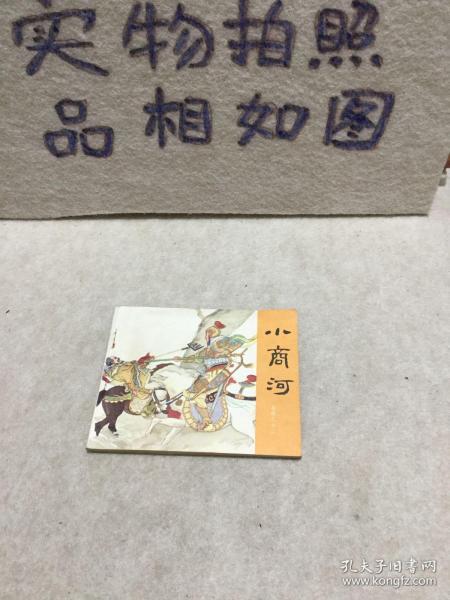 实物拍照
品相如图
小商河
孔夫子旧书网
www.kongfz.com